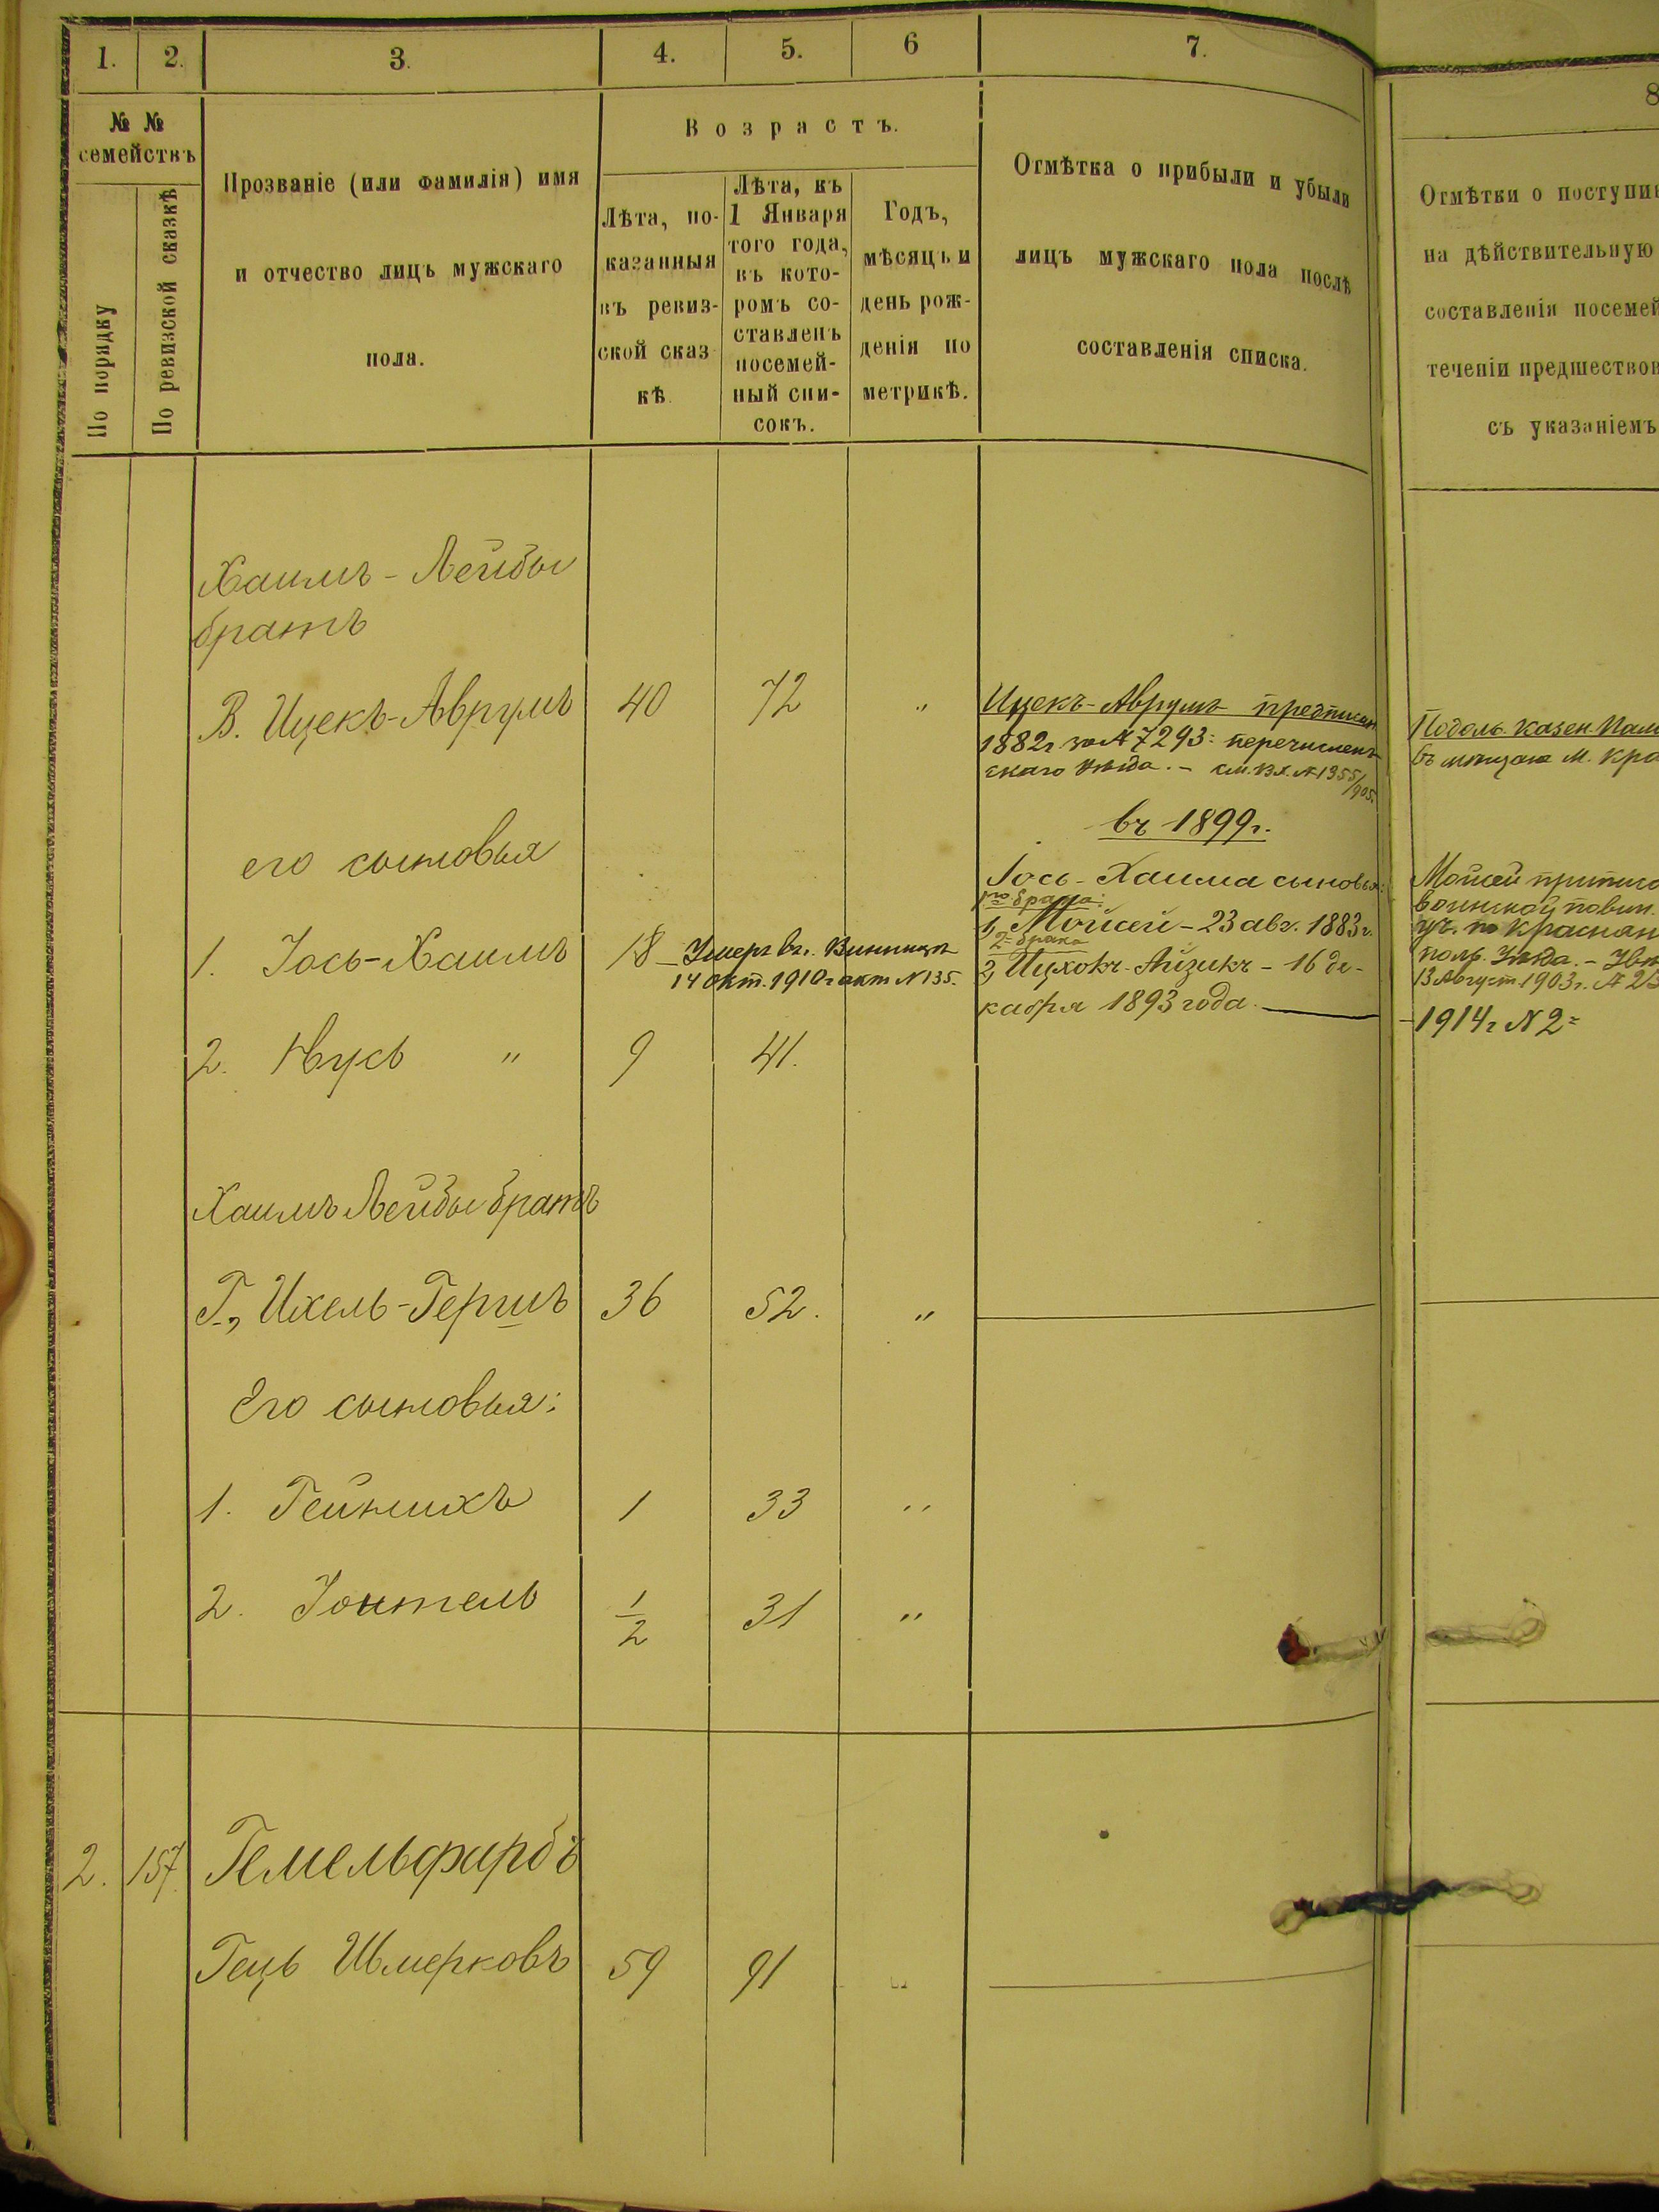 1. 2. 3. 4. 5. 6 7.
8
№ №
семействъ
По порядку
По ревизской сказкѣ
Прозваніе (или фамилія) имя
и отчество лицъ мужскаго
пола.
Возрастъ.
Лѣта, по-
казанныя
въ ревиз-
ской сказ
кѣ.
Лѣта, къ
1 Января
того года,
въ кото-
ромъ со-
ставленъ
посемей-
ный спи-
сокъ.
Годъ,
мѣсяцъ и
день рож-
денія по
метрикѣ.
Отмѣтка о прибыли и убыли
лицъ мужскаго пола послѣ
составленія списка.
Отмѣтки о поступив
на дѣйствительную
составленія посемей
теченіи предшествов
съ указаніемъ
Хаимъ-Лейбы
братъ
В. Ицекъ-Аврумъ 40 72 "
Ицекъ-Аврумъ предписан
1882 г за № 7293: перечисленъ
скаго уѣзда. - см. вх. № 1355/905.
Подоль. Казен. Пала
въ мѣщане м. Кра
его сыновья
въ 1899 г.
Іось-Хаима сыновья:
1го брака:
1, Мойсей - 23 авг. 1883 г.
2го брака
2, Ицхокъ-Айзикъ - 16 де-
кабря 1893 года.
1. Іось-Хаимъ 18 Умеръ въ г. Винницѣ
14 окт. 1910 г акт № 135.
Мойсей припис
воинской повин.
уч. по Краснян
польс. уѣзда. -
13 Август. 1903 г. №
1914 г № 2
2. Нусь " 9 41.
Хаимъ Лейбы братъ
Г., Ихель-Гершъ 36 52. "
Его сыновья:
1. Гейнихъ 1 33 "
2. Іоитель 1/2 31 "
2. 157 Гемельфарбъ
Гець Шмерковъ 59 91 "